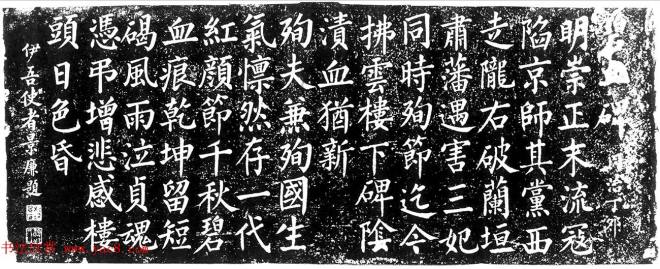 碧血碑 同治丁卯
明崇正末流寇
陷京師其黨西
走隴右破蘭垣
肅藩遇害三妃
同時殉節迄今
拂雲樓下碑陰
漬血猶新
殉夫兼殉國生
氣懍然存一代
紅顏節千秋碧
血痕乾坤留短
碣風雨泣貞魂
憑弔增悲感樓
頭日色昏
伊吾使者景廉題